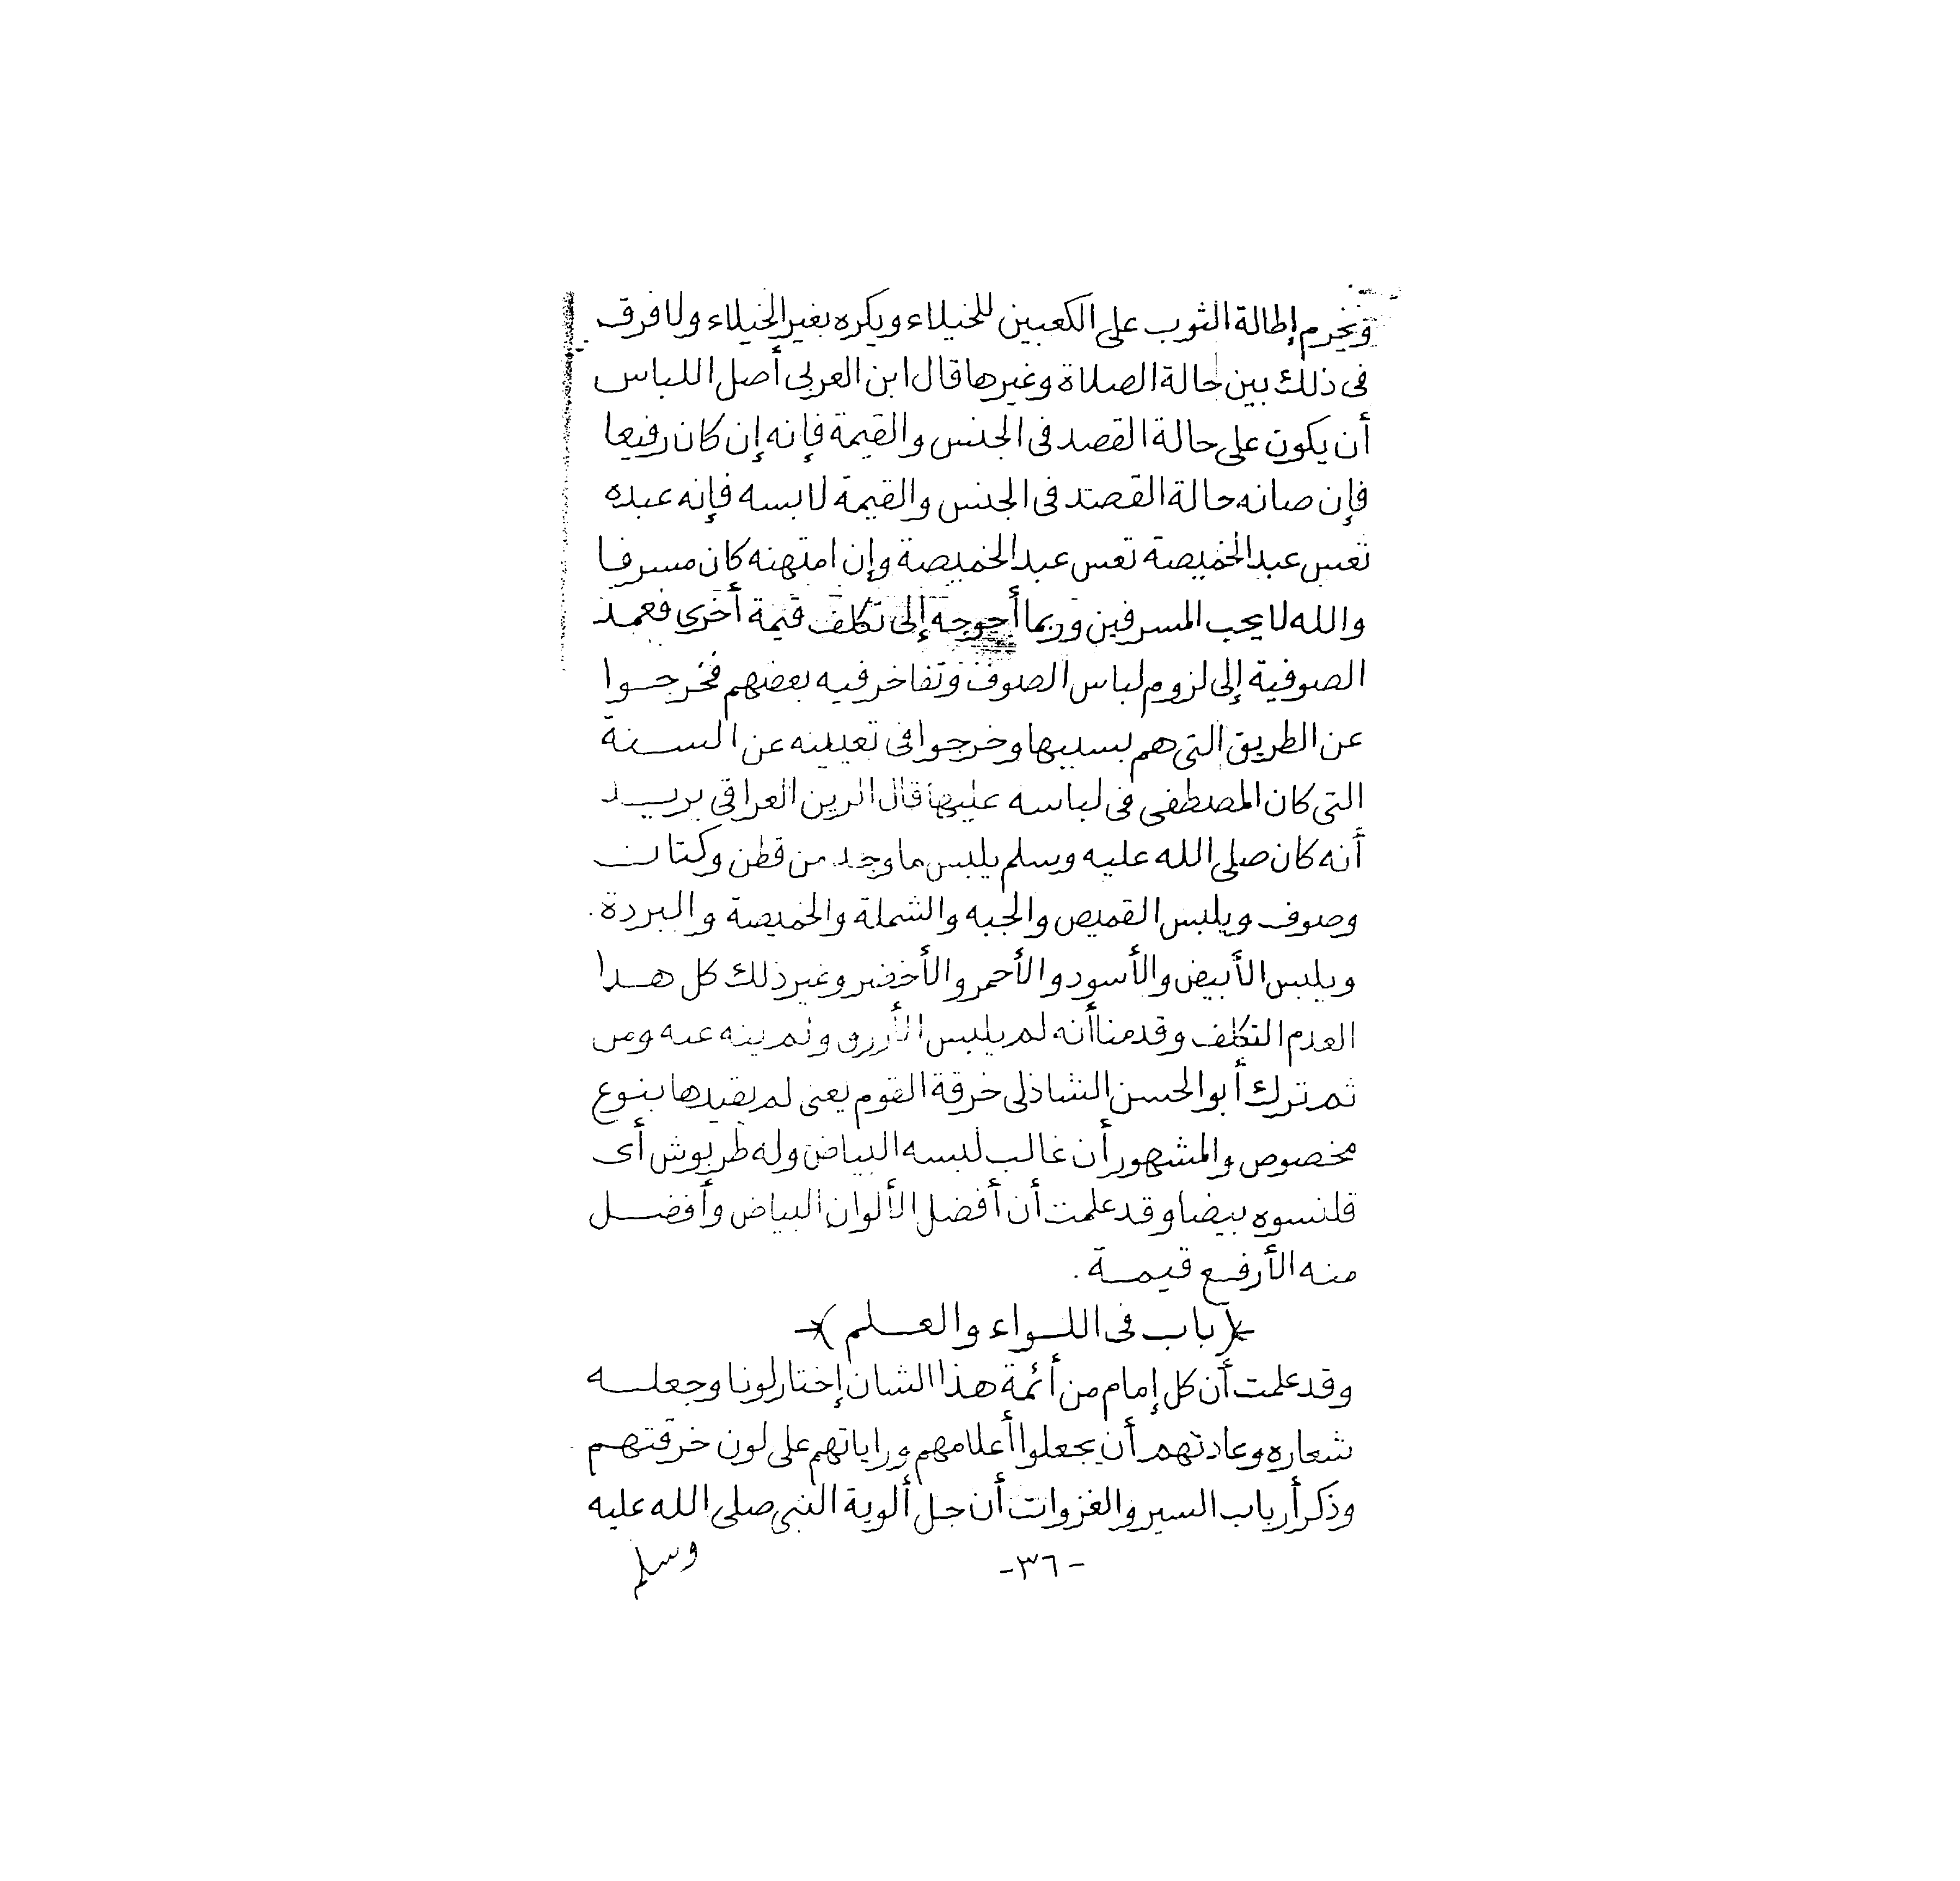 ويحرم إطالة الثوب على الكعبين للخيلاء ويكره بغير الخيلاء ولا فرق
فى ذلك بين حالة الصلاة وغيرها قال ابن العربى أصل اللباس
أن يكون على حالة القصد فى الجنس والقيمة فإنه إن كان رفيعا
فإن صانه حالة القصد فى الجنس والقيمة لابسه فإنه عبده
تعس عبد الخميصة تعس عبد الخميصة وإن امتهنه كان مسرفا
والله لا يحب المسرفين وربما أحوجه إلى تكلف قيمة أخرى فعمد
الصوفية إلى لزوم لباس الصوف وتفاخر فيه بعضهم فخرجوا
عن الطريق التى هم بسببها وخرجوا فى تعيينه عن السنة
التى كان المصطفى فى لباسه عليها قال الزين العراقى يريد
أنه كان صلى الله عليه وسلم يلبس ما وجد من قطن وكتان
وصوف ويلبس القميص والجبه والشملة والخميصة والبردة.
ويلبس الأبيض والأسود والأحمر والأخضر وغير ذلك كل هدا
العدم التكلف وقدمنا أنه لم يلبس الأزرق ولم ينه عنه ومن
ثم ترك أبو الحسن الشاذلى خرقة القوم يعنى لم يقيدها بنوع
مخصوص والمشهور أن غالب لبسه البياض وله طربوش أى
قلنسوه بيضا وقد علمت أن أفضل الألوان البياض وأفضل
منه الأرفع قيمة.
(باب فى اللواء والعلم)
وقد علمت أن كل إمام من أئمة هذا الشان إختار لونا وجعله
شعاره وعادتهم أن يجعلوا أعلامهم وراياتهم على لون خرقتهم
وذكر أرباب السير والغزوات أن جل ألوية النبى صلى الله عليه
وسلم
-٣٦-